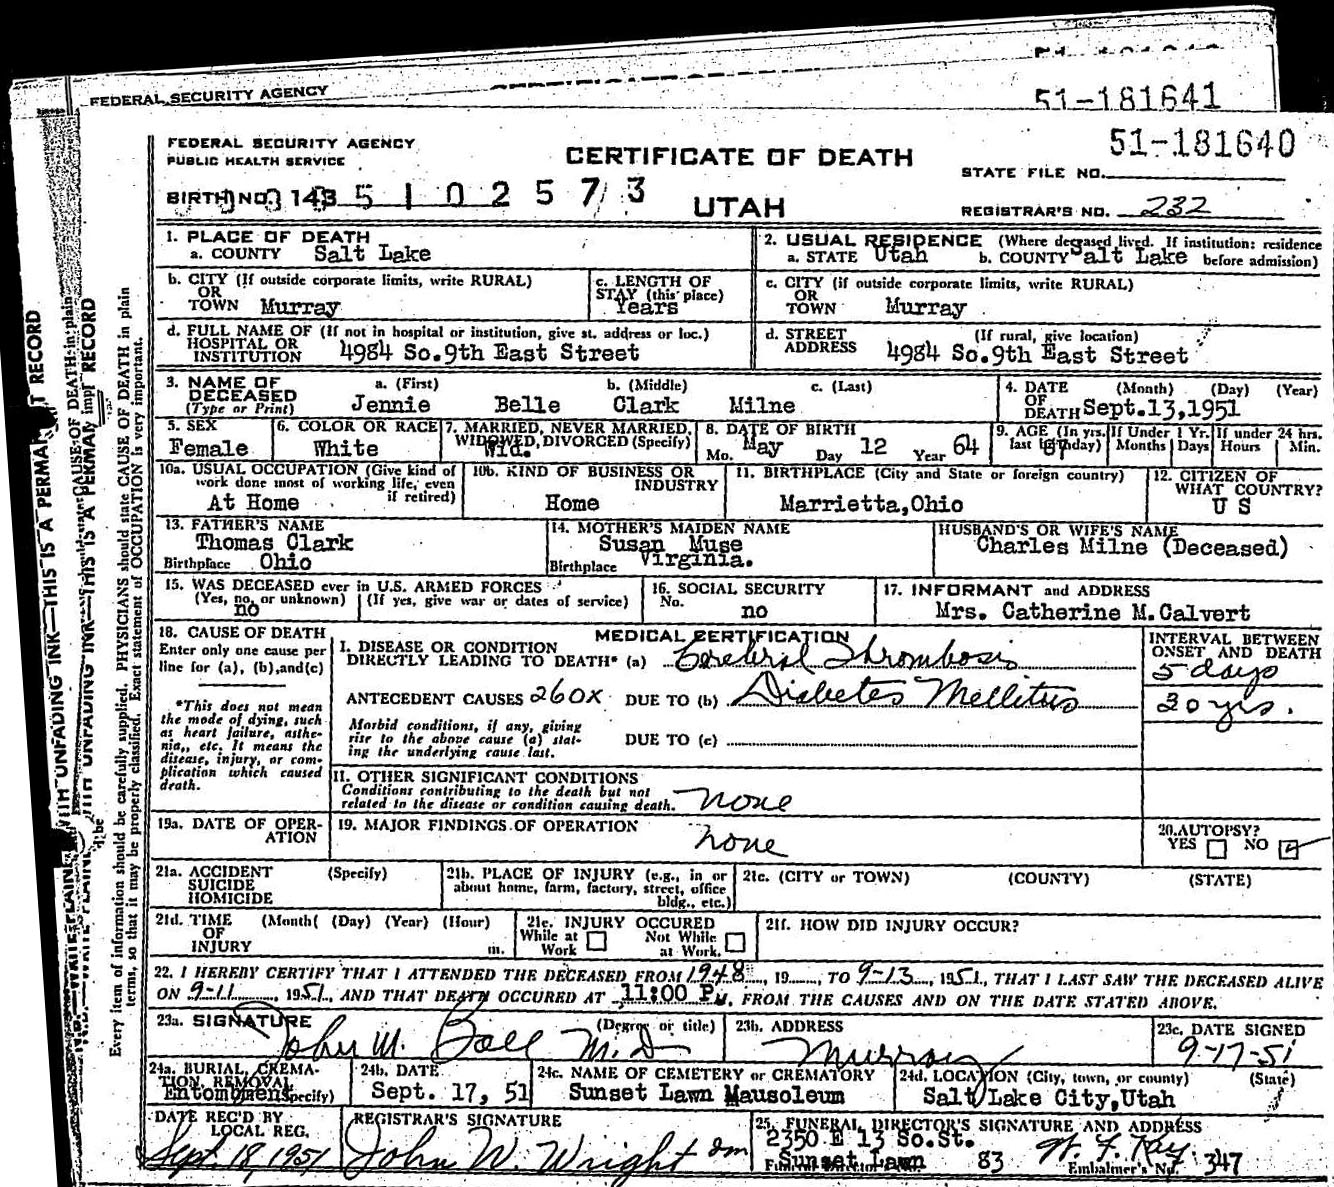 FEDERAL SECURITY AGENCY
51-181641
51-181640
FEDERAL SECURITY AGENCY
PUBLIC HEALTH SERVICE
CERTIFICATE OF DEATH
STATE FILE NO.
BIRTH NO. 143 5 1 0 2 5 7 3
UTAH
REGISTRAR'S NO. 232
1. PLACE OF DEATH
a. COUNTY Salt Lake
2. USUAL RESIDENCE (Where deceased lived. If institution: residence before admission)
a. STATE Utah b. COUNTY Salt Lake
b. CITY (If outside corporate limits, write RURAL)
OR
TOWN Murray
c. LENGTH OF
STAY (this place)
Years
c. CITY (if outside corporate limits, write RURAL)
OR
TOWN Murray
d. FULL NAME OF (If not in hospital or institution, give st. address or loc.)
HOSPITAL OR
INSTITUTION 4984 So.9th East Street
d. STREET (If rural, give location)
ADDRESS 4984 So.9th East Street
3. NAME OF DECEASED
(Type or Print)
a. (First) b. (Middle) c. (Last)
Jennie Belle Clark Milne
4. DATE (Month) (Day) (Year)
OF
DEATH Sept.13,1951
5. SEX
Female
6. COLOR OR RACE
White
7. MARRIED, NEVER MARRIED,
WIDOWED, DIVORCED (Specify)
Wid.
8. DATE OF BIRTH
Mo. May Day 12 Year 64
9. AGE (In yrs. last birthday) 87
If Under 1 Yr. Months Days
If under 24 hrs. Hours Min.
10a. USUAL OCCUPATION (Give kind of
work done most of working life, even
if retired)
At Home
10b. KIND OF BUSINESS OR
INDUSTRY
Home
11. BIRTHPLACE (City and State or foreign country)
Marrietta,Ohio
12. CITIZEN OF
WHAT COUNTRY?
U S
13. FATHER'S NAME
Thomas Clark
Birthplace Ohio
14. MOTHER'S MAIDEN NAME
Susan Muse
Birthplace Virginia.
HUSBAND'S OR WIFE'S NAME
Charles Milne (Deceased)
15. WAS DECEASED ever in U.S. ARMED FORCES
(Yes, no, or unknown) (If yes, give war or dates of service)
no
16. SOCIAL SECURITY
No.
no
17. INFORMANT and ADDRESS
Mrs. Catherine M.Calvert
18. CAUSE OF DEATH
Enter only one cause per
line for (a), (b),and(c)
*This does not mean
the mode of dying, such
as heart failure, asthe-
nia,, etc. It means the
disease, injury, or com-
plication which caused
death.
MEDICAL CERTIFICATION
I. DISEASE OR CONDITION
DIRECTLY LEADING TO DEATH* (a) Cerebral Thrombosis
INTERVAL BETWEEN
ONSET AND DEATH
5 days
ANTECEDENT CAUSES 260X DUE TO (b) Diabetes Mellitus
20 yrs.
Morbid conditions, if any, giving
rise to the above cause (a) stat-
ing the underlying cause last.
DUE TO (c)
II. OTHER SIGNIFICANT CONDITIONS
Conditions contributing to the death but not
related to the disease or condition causing death. none
19a. DATE OF OPER-
ATION
19. MAJOR FINDINGS OF OPERATION
none
20.AUTOPSY?
YES NO
21a. ACCIDENT (Specify)
SUICIDE
HOMICIDE
21b. PLACE OF INJURY (e.g., in or
about home, farm, factory, street, office
bldg., etc.)
21c. (CITY or TOWN) (COUNTY) (STATE)
21d. TIME (Month( (Day) (Year) (Hour)
OF
INJURY m.
21e. INJURY OCCURED
While at Work Not While at Work.
21f. HOW DID INJURY OCCUR?
22. I HEREBY CERTIFY THAT I ATTENDED THE DECEASED FROM 1948, 19......, TO 9-13, 1951, THAT I LAST SAW THE DECEASED ALIVE
ON 9-11, 1951, AND THAT DEATH OCCURED AT 11:00 P M, FROM THE CAUSES AND ON THE DATE STATED ABOVE.
23a. SIGNATURE (Degree or title)
John M. Ball M.D
23b. ADDRESS
Murray
23c. DATE SIGNED
9-17-51
24a. BURIAL, CREMA-
TION, REMOVAL
Entombment (Specify)
24b. DATE
Sept. 17, 51
24c. NAME OF CEMETERY or CREMATORY
Sunset Lawn Mausoleum
24d. LOCATION (City, town, or county) (State)
Salt Lake City,Utah
DATE REC'D BY
LOCAL REG.
Sept. 18, 1951
REGISTRAR'S SIGNATURE
John W. Wright
25. FUNERAL DIRECTOR'S SIGNATURE AND ADDRESS
2350 E 13 So.St.
Sunset Lawn 83
Embalmer's No. 347
Every item of information should be carefully supplied. PHYSICIANS should state CAUSE OF DEATH in plain
terms, so that it may be properly classified. Exact statement of OCCUPATION is very important.
WITH UNFADING INK—THIS IS A PERMANENT RECORD